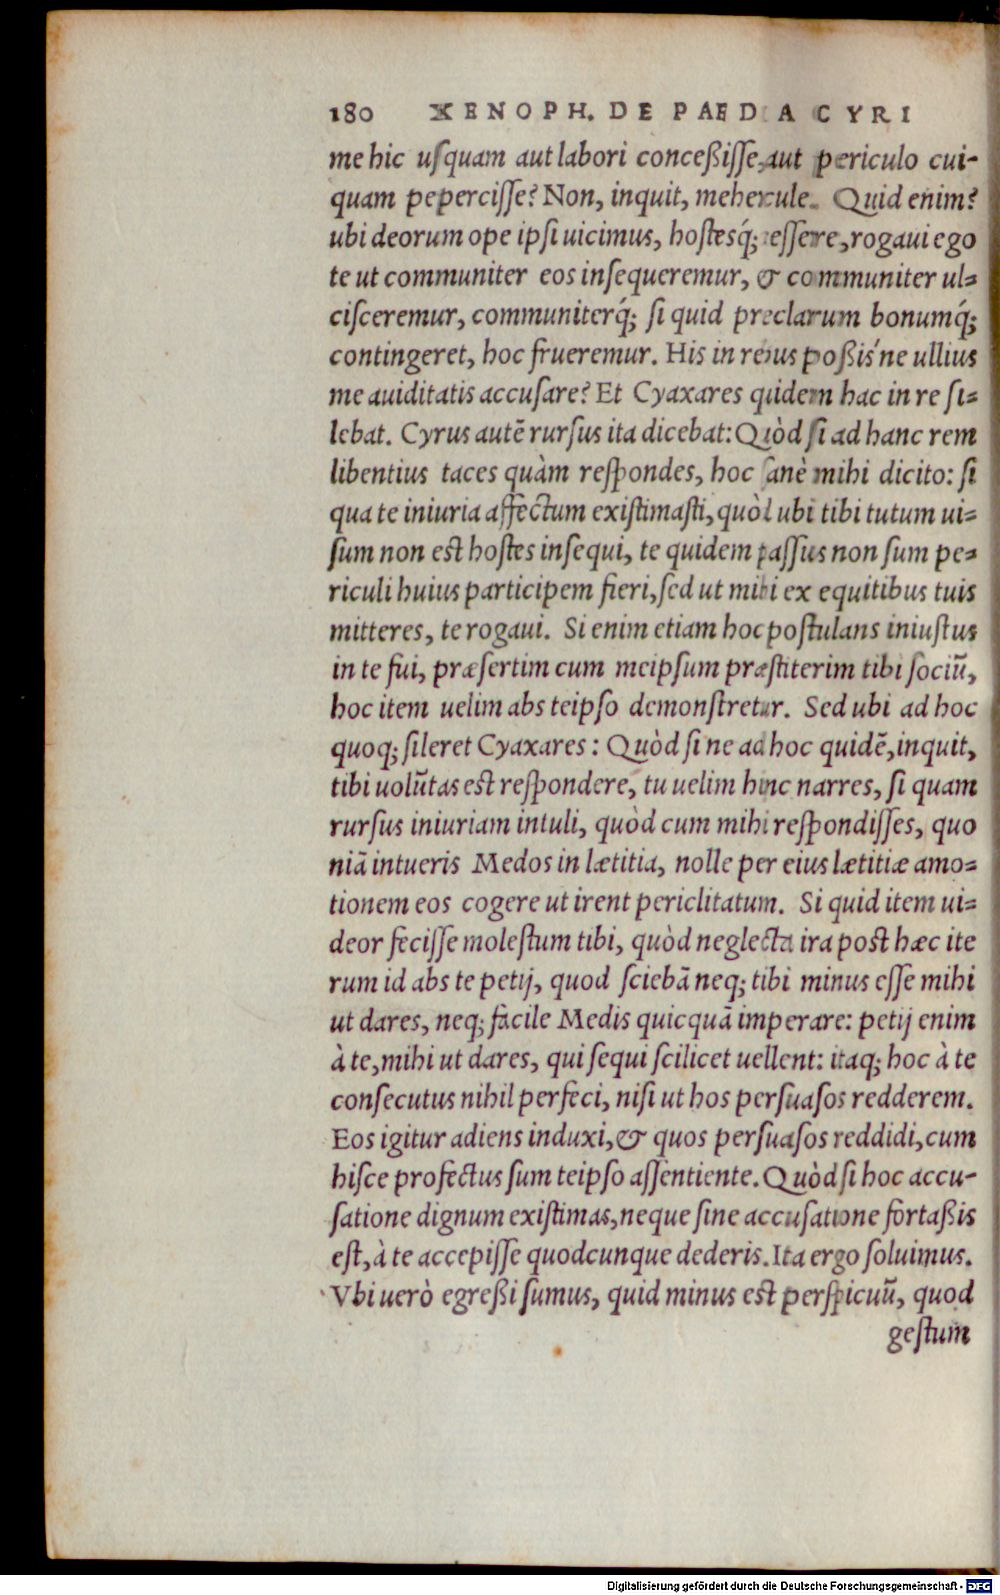 180 XENOPH. DE PAED A CYRI
me hic uſquam aut labori conceßiſſe, aut periculo cui-
quam peperciſſe? Non, inquit, mehercule. Quid enim?
ubi deorum ope ipſi uicimus, hoſtesq́;  rogaui ego
te ut communiter eos inſequeremur, & communiter ul-
ciſceremur, communiterq́; ſi quid preclarum bonumq́;
contingeret, hoc frueremur. His in rebus poßis'ne ullius
me auiditatis accuſare? Et Cyaxares quidem hac in re ſi-
lebat. Cyrus autē rurſus ita dicebat: Quòd ſi ad hanc rem
libentius taces quàm reſpondes, hoc ſanè mihi dicito: ſi
qua te iniuria affectum exiſtimaſti, quòd ubi tibi tutum ui-
ſum non eſt hoſtes inſequi, te quidem paſſus non ſum pe-
riculi huius participem fieri, ſed ut mihi ex equitibus tuis
mitteres, te rogaui. Si enim etiam hoc poſtulans iniuſtus
in te fui, præſertim cum meipſum præſtiterim tibi ſociũ,
hoc item uelim abs teipſo demonſtretur. Sed ubi ad hoc
quoq; ſileret Cyaxares: Quòd ſi ne ad hoc quidē, inquit,
tibi uolũtas eſt reſpondere, tu uelim hinc narres, ſi quam
rurſus iniuriam intuli, quòd cum mihi reſpondiſſes, quo
niã intueris Medos in lætitia, nolle per eius lætitiæ amo-
tionem eos cogere ut irent periclitatum. Si quid item ui-
deor feciſſe moleſtum tibi, quòd neglecta ira poſt hæc ite
rum id abs te petij, quod ſciebã neq; tibi minus eſſe mihi
ut dares, neq; facile Medis quicquã imperare: petij enim
à te, mihi ut dares, qui ſequi ſcilicet uellent: itaq; hoc à te
conſecutus nihil perfeci, niſi ut hos perſuaſos redderem.
Eos igitur adiens induxi, & quos perſuaſos reddidi, cum
hiſce profectus ſum teipſo aſſentiente. Quòd ſi hoc accu-
ſatione dignum exiſtimas, neque ſine accuſatione fortaßis
eſt, à te accepiſſe quodcunque dederis. Ita ergo ſoluimus.
Vbi uerò egreßi ſumus, quid minus eſt perſpicuũ, quod
geſtum
Digitalisierung gefördert durch die Deutsche Forschungsgemeinschaft - DFG